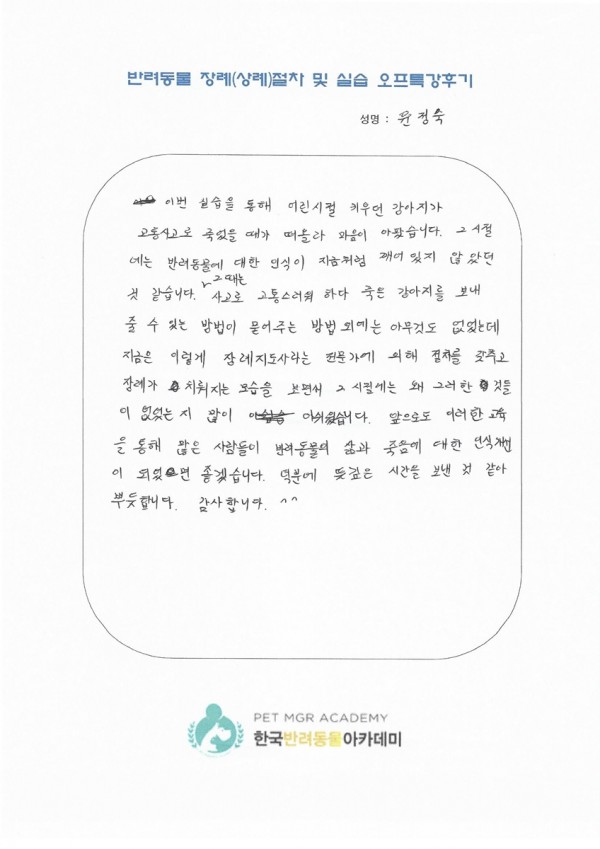 반려동물 장례(상례)절차 및 실습 오프특강후기
성명 : 윤정숙
이번 실습을 통해 어린시절 키우던 강아지가
교통사고로 죽었을 때가 떠올라 마음이 아팠습니다. 그 시절
에는 반려동물에 대한 인식이 지금처럼 깨어 있지 않았던
것 같습니다. 그때는 사고로 고통스러워 하다 죽은 강아지를 보내
줄 수 있는 방법이 묻어주는 방법 외에는 아무것도 없었는데
지금은 이렇게 장례지도사라는 전문가에 의해 절차를 갖추고
장례가 치뤄지는 모습을 보면서 그 시절에는 왜 그러한 것들
이 없었는지 많이 아쉬웠습니다. 앞으로도 이러한 교육
을 통해 많은 사람들이 반려동물의 삶과 죽음에 대한 인식개선
이 되었으면 좋겠습니다. 덕분에 뜻깊은 시간을 보낸 것 같아
뿌듯합니다. 감사합니다. ^^
PET MGR ACADEMY
한국반려동물아카데미